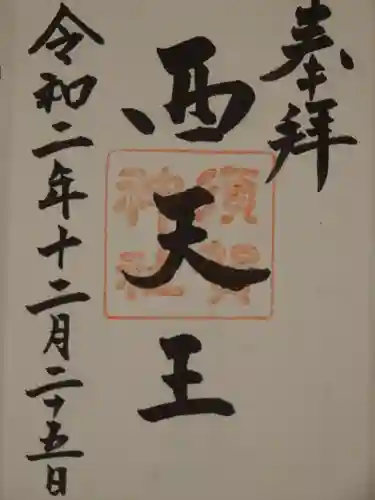 奉拝
西天王
須賀
神社
令和二年十二月二十五日